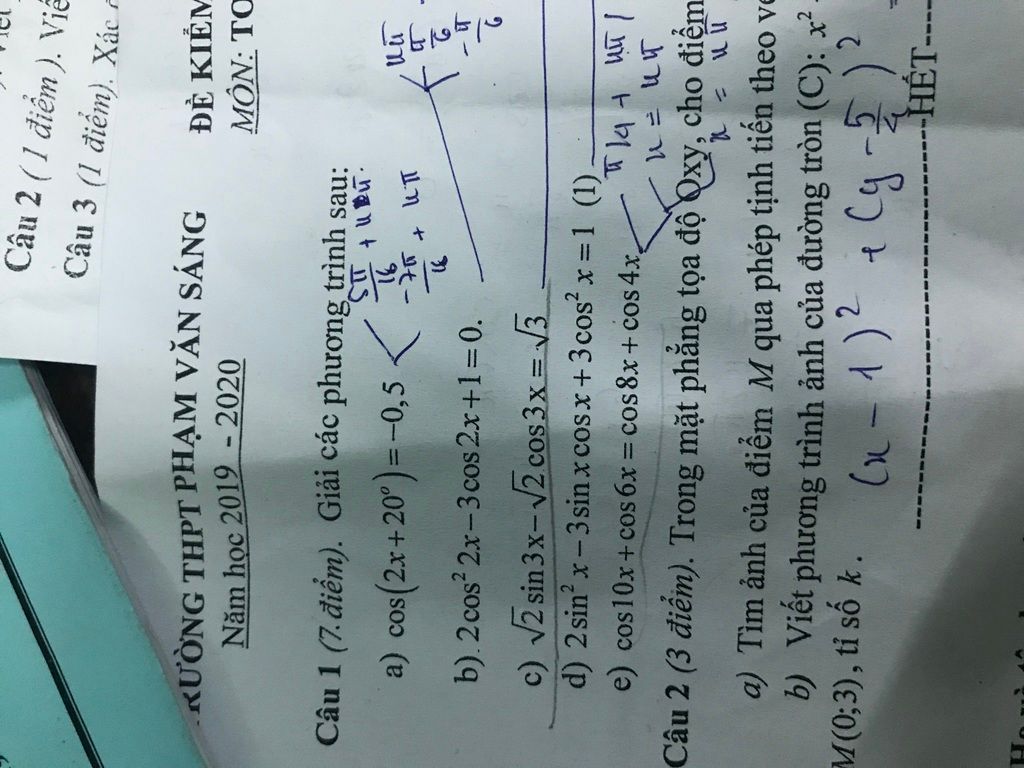 Câu 2 ( 1 điểm ). Viế
Câu 3 (1 điểm). Xác
TRƯỜNG THPT PHẠM VĂN SÁNG
Năm học 2019 - 2020
ĐỀ KIỂM
MÔN: TO
Câu 1 (7 điểm). Giải các phương trình sau:
a) cos(2x+20°)=-0,5
b). 2cos² 2x-3cos2x+1=0.
c) √2 sin3x-√2 cos3x=√3
d) 2sin² x-3sin x cos x+3cos² x=1 (1)
e) cos10x+cos6x=cos8x+cos4x.
Câu 2 (3 điểm). Trong mặt phẳng tọa độ Oxy, cho điểm
a) Tìm ảnh của điểm M qua phép tịnh tiến theo ve
b) Viết phương trình ảnh của đường tròn (C): x²
M(0;3), tỉ số k.
(x - 1)² + (y - 5/4)² =
HẾT